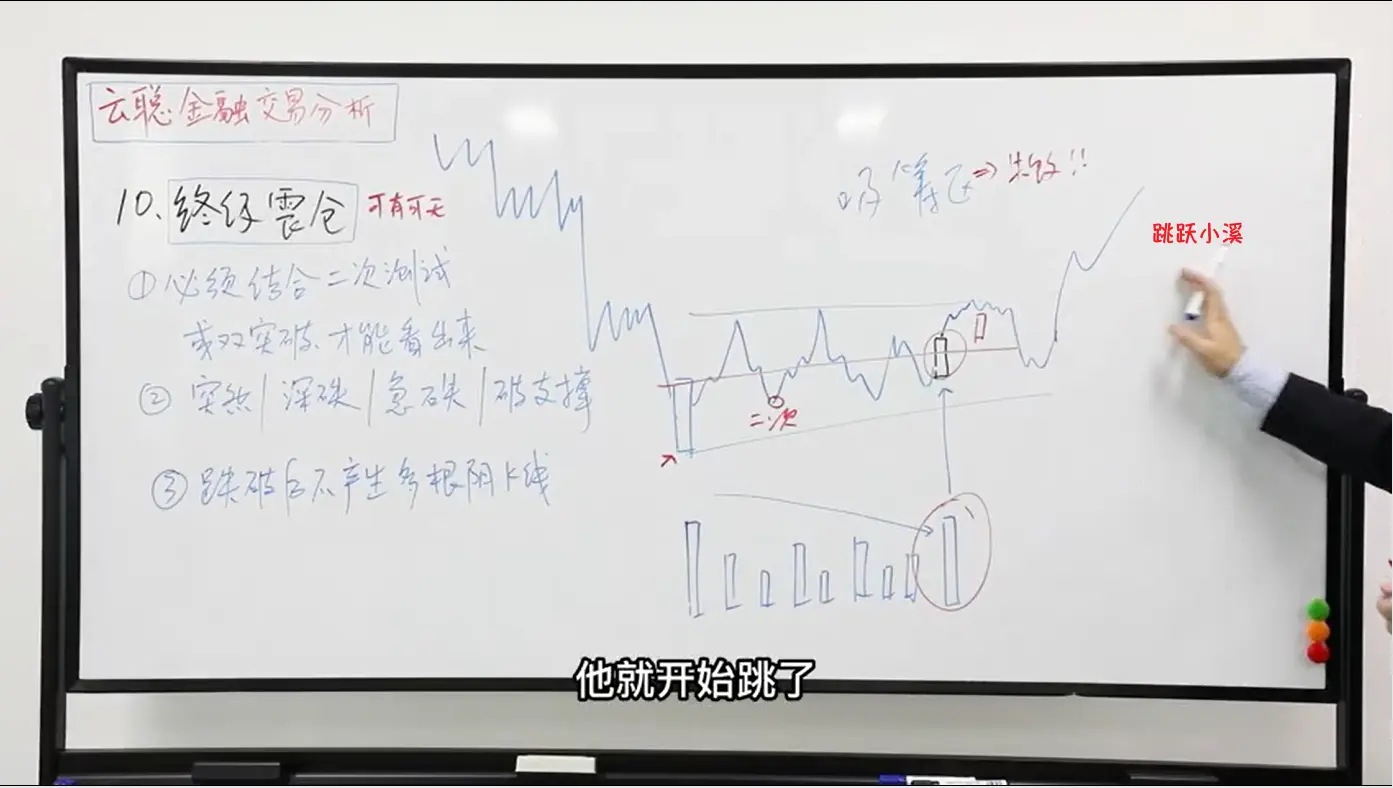 云聪金融交易分析
10.终级震仓 可有可无
①必须结合二次测试
或双突破才能看出来
②突然/深跌/急跌/破支撑
③跌破后不产生多根阴K线
吸筹区⇒
跳跃小溪
二次
他就开始跳了